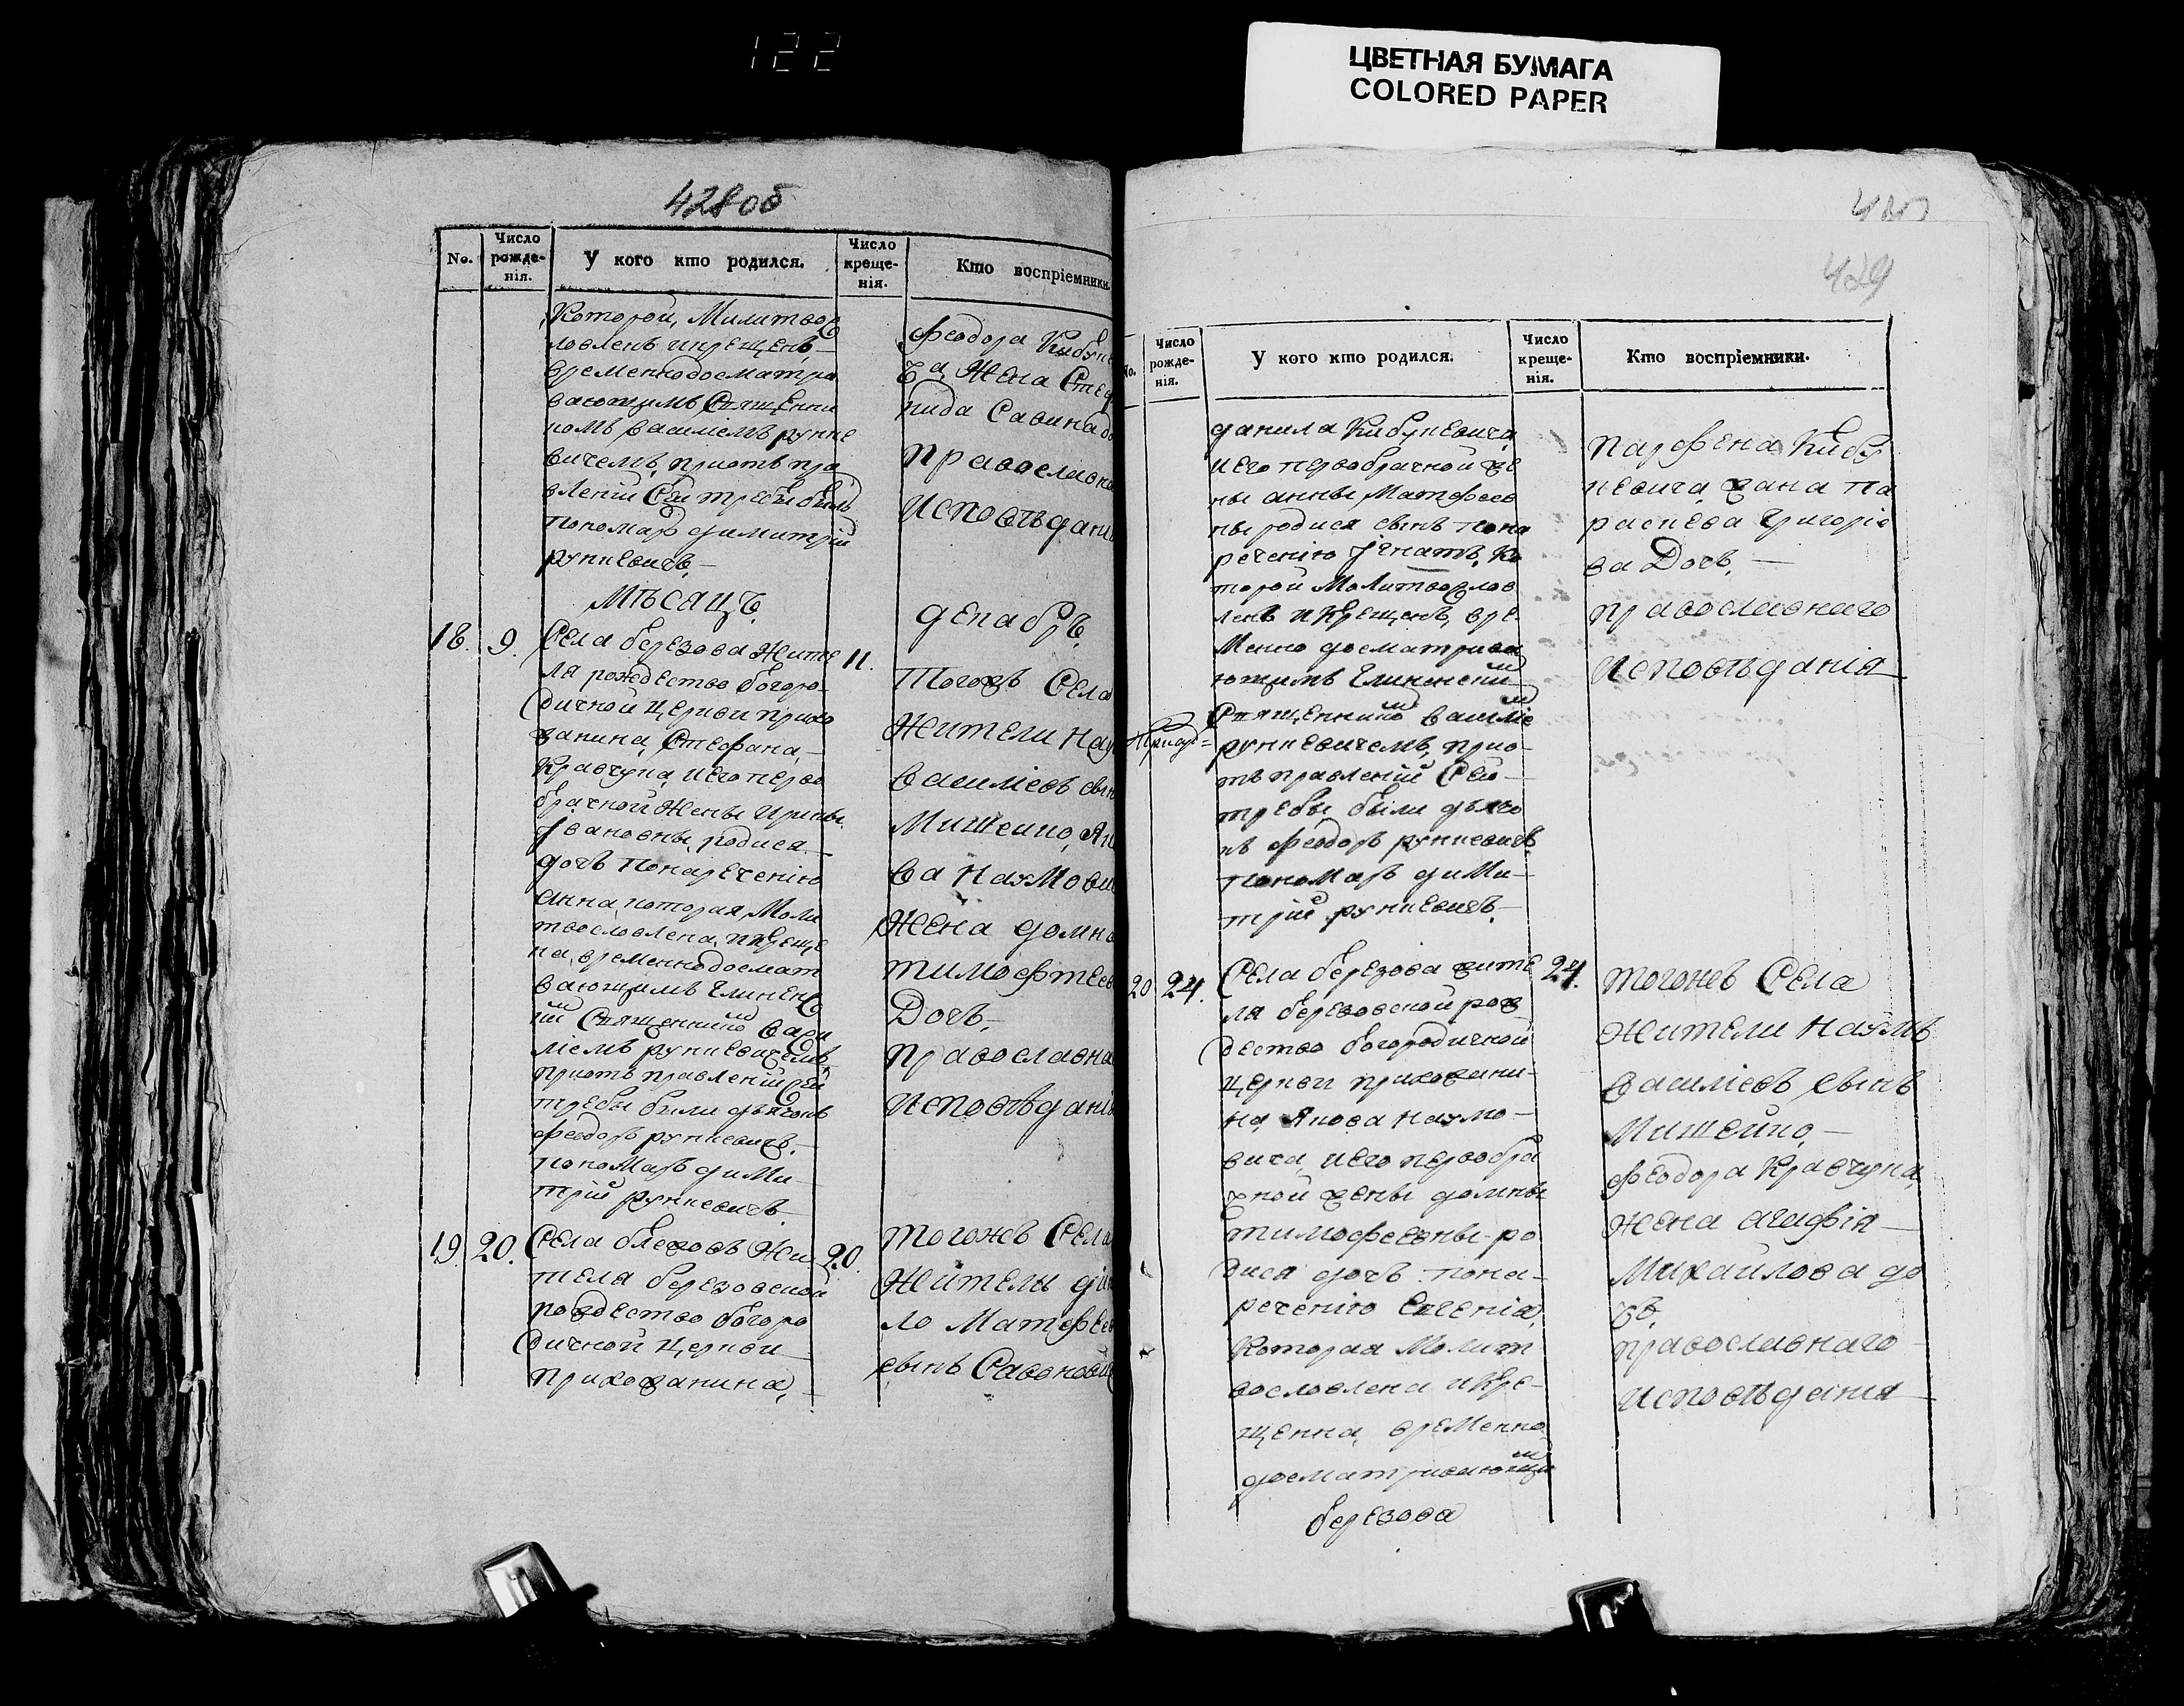 122
ЦВЕТНАЯ БУМАГА
COLORED PAPER
428об
No.
Число рожде-нія.
У кого кто родился.
Число креще-нія.
Кто воспріемники.
Которой, Молитвос
ловленъ икрещенъ,—
временнодосматри
вающимъ Священни
комъ Василіемъ рунке
вичемъ, приотъпра
вленіи Сей требы былъ
пономарь димитрій
рункевичъ,—
Феодора Кибуке
ча, Жена Степ
нида Савина до
православна
Исповѣдані
Мѣсяцъ,
декабрь,
18.
9.
Села березова Жите
ля рождество богоро-
дичной церкви прихо
жанина, Стефана,—
Кравчука, иего перво
брачной Жены Ирины
Івановны, родися—
дочь понареченію
Анна, которая Моли
твословлена, икреще
на, временнодосмат
вающимъ Глиненс
ій Священнико Васи
ліемъ рункевичемъ,
приотъ правленіи Сей
требы были дьячокъ
Феодоръ рункевичъ,—
пономарь дими-
трій рункевичъ—
11.
Тогожъ Села
Жители Нау
Василіевъ сын
Мишейко, Як
ва Наумови
Жена домна
тимофтеев
Дочь,—
православна
исповѣдані
19.
20.
Села блежовъ Жи
теля березовской
рождество богоро
дичной Церкви—
прихожанина,—
20.
тогожъ Села
Жители ді
ло Матфѣев
сынъ Савонови
429
No.
Число рожде-нія.
У кого кто родился.
Число креще-нія.
Кто воспріемники.
данила Кибукевича
иего первобрачной же
ны анны, Матфеев
ны родися сынъ пона
реченію Ігнатъ, Ко
торой Молитвослов
ленъ икрещенъ, вре-
менно досматрива
ющимъ Глиненски
Священнико Василіе
рункевичемъ, прио-
тъ правленіи Сей—
требы были дьячо
къ Феодоръ рункевичъ,
пономарь дими-
трій рункевичъ—
парфена Кибу
кевича жана па
раскева Григорie
ва Дочь,—
православнаго
исповѣданія
20
24.
Села березова жите
ля березовской рож
дество богородичной
церкви прихожани-
на, Якова Наумо—
вича, иего первобра
чной жены домны
тимофеевны ро
дися дочь пона-
реченію Евгенія,
которая Молит
вословлена икре-
щенна, временно
досматривающи
24.
тогожъ Села
Жители Наумъ
Василіевъ сынъ
Мишейко,—
Феодора Кравчука,
Жена агафія—
Михайлова до
чь,
православнаго—
исповѣданія—
березова